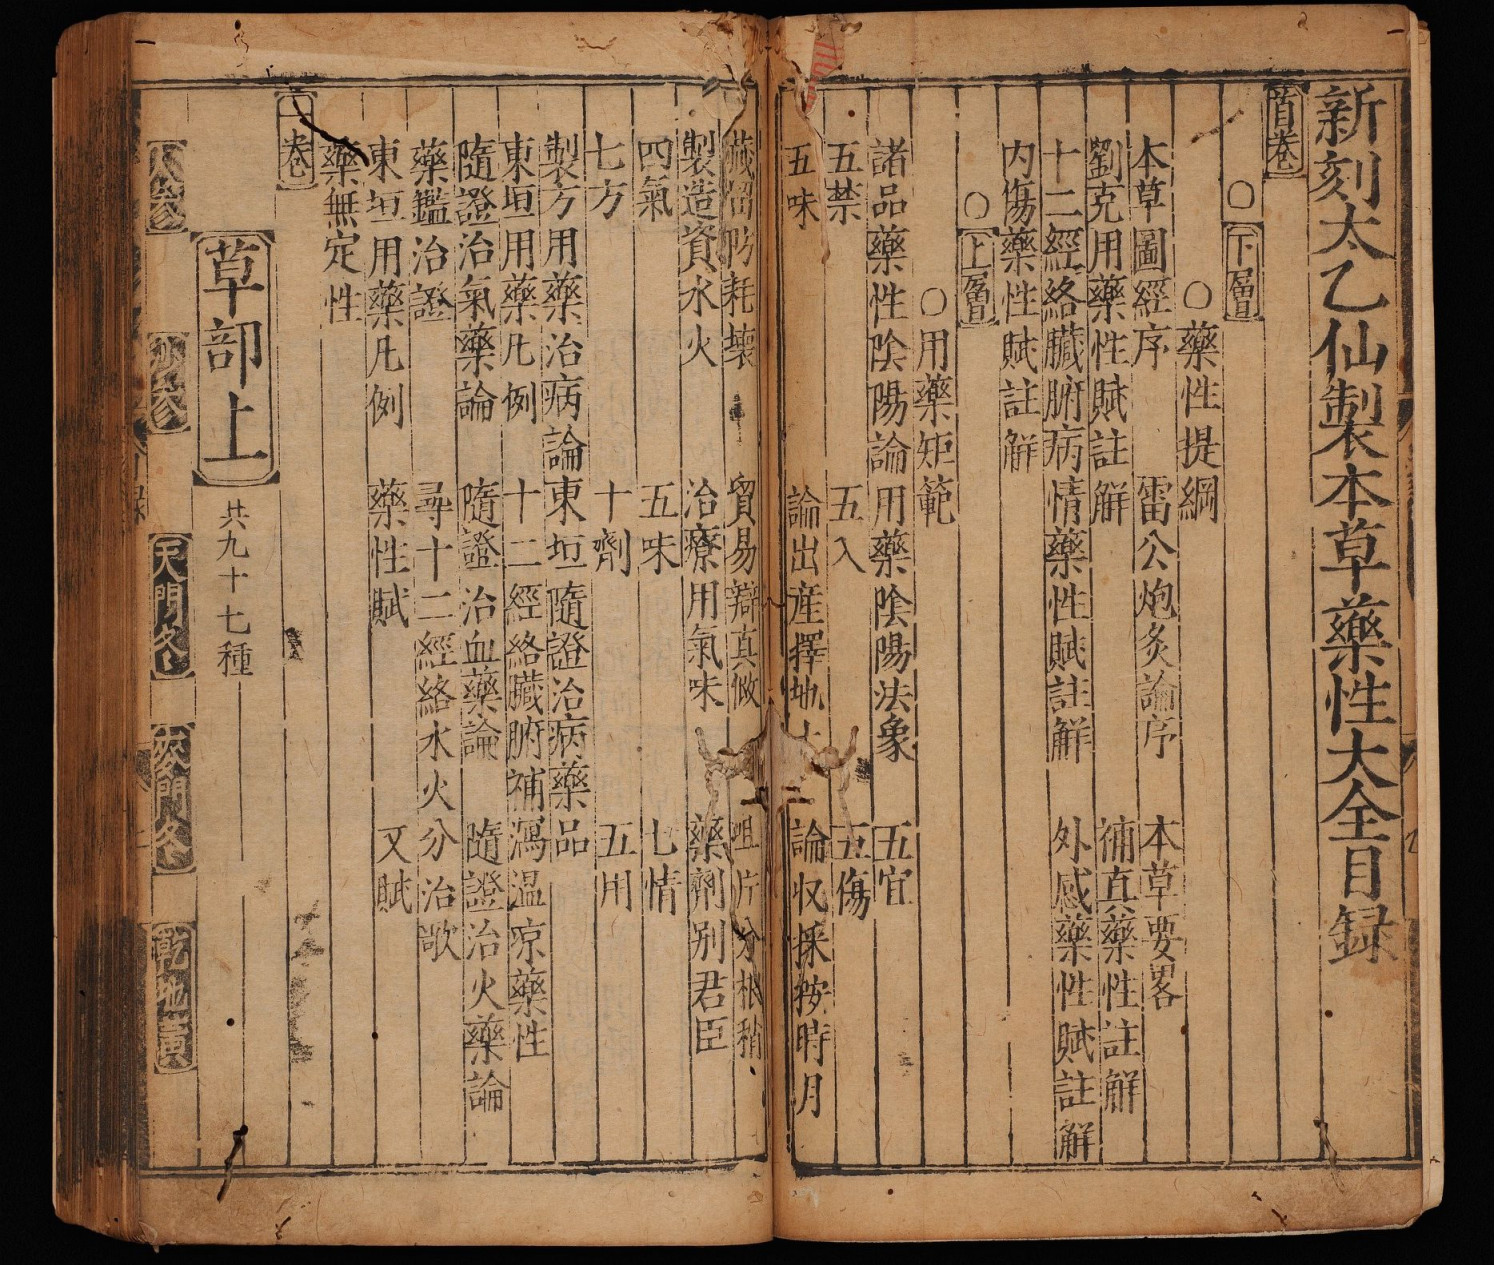 新刻太乙仙製本草藥性大全目録
首卷
○下層目
○藥性提綱
本草圖經序　雷公炮炙論序　本草要畧
劉克用藥性賦註觧　補真藥性註觧
十二經絡臟腑病情藥性賦註觧　外感藥性賦註觧
内傷藥性賦註觧
○上層目
○用藥矩範
諸品藥性陰陽論　用藥陰陽法象　五宜
五禁　五入　五傷
五味　論出産擇地　論収採按時月
藏留防耗壞　貿易辯真假　咀片分根稍
製造資水火　治療用氣味　藥劑别君臣
四氣　五味　七情
七方　十劑　五用
製方用藥治病論　東垣隨證治病藥品
東垣用藥凡例　十二經絡臟腑補瀉温凉藥性
隨證治氣藥論　隨證治血藥論　隨證治火藥論
藥鑑治證　尋十二經絡水火分治歌
東垣用藥凡例　藥性賦　又賦
藥無定性
一卷
草部上　共九十七種
人參　沙參　天門冬　麥門冬　乾地黄